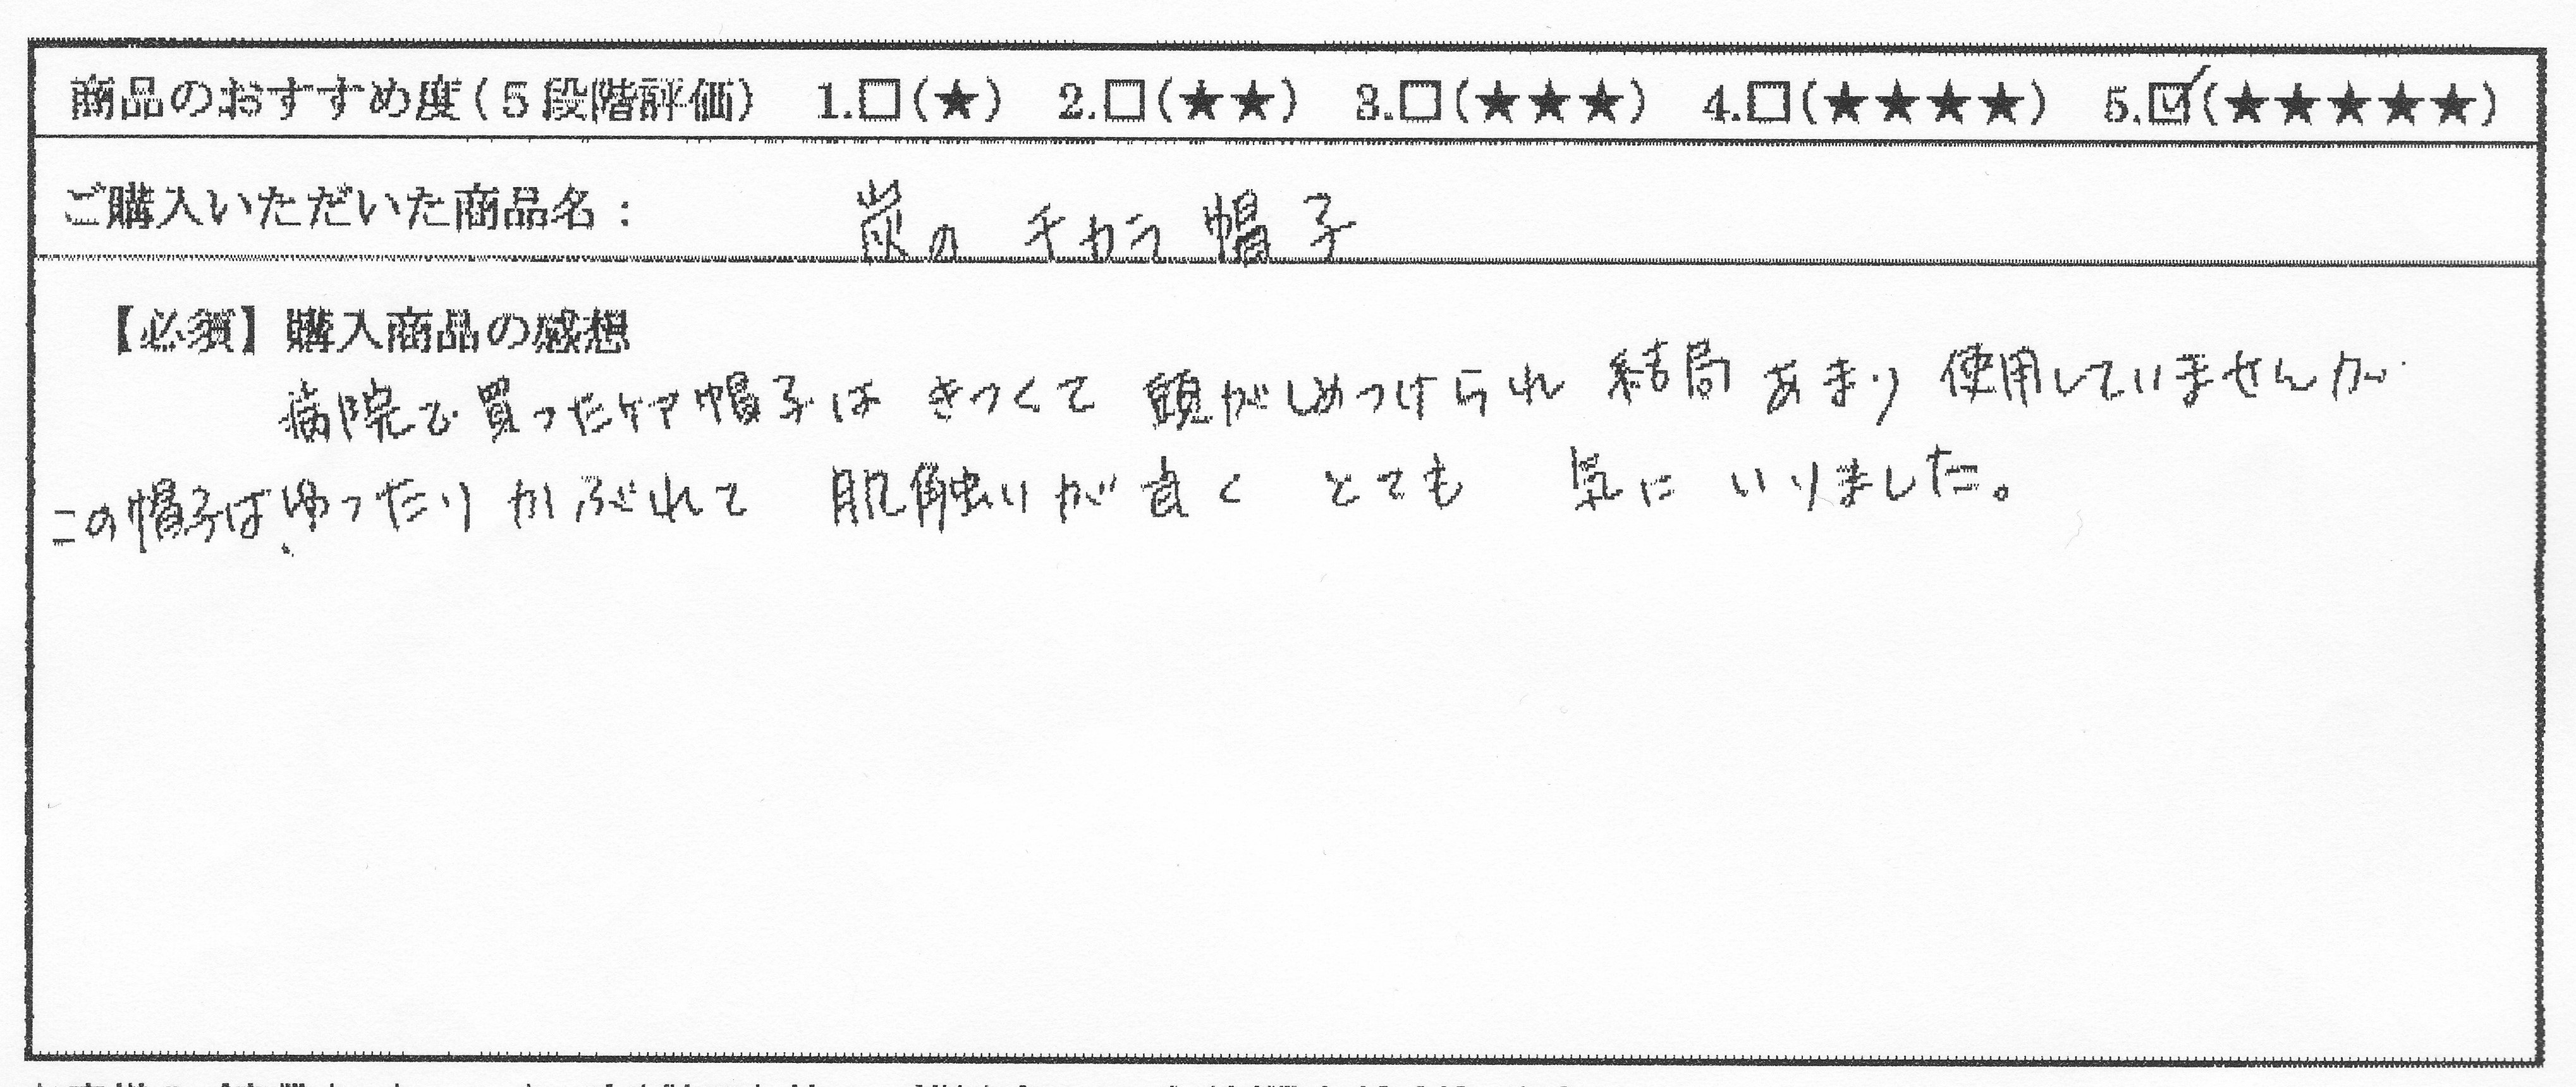 商品のおすすめ度（５段階評価） 1.□(★) 2.□(★★) 3.□(★★★) 4.□(★★★★) 5.☑(★★★★★)
ご購入いただいた商品名： 炭のチカラ 帽子
【必須】購入商品の感想
病院で買ったケア帽子は きつくて 頭がしめつけられ 結局 あまり 使用していませんが
この帽子はゆったり かぶれて 肌触りが良く とても 気に いりました。